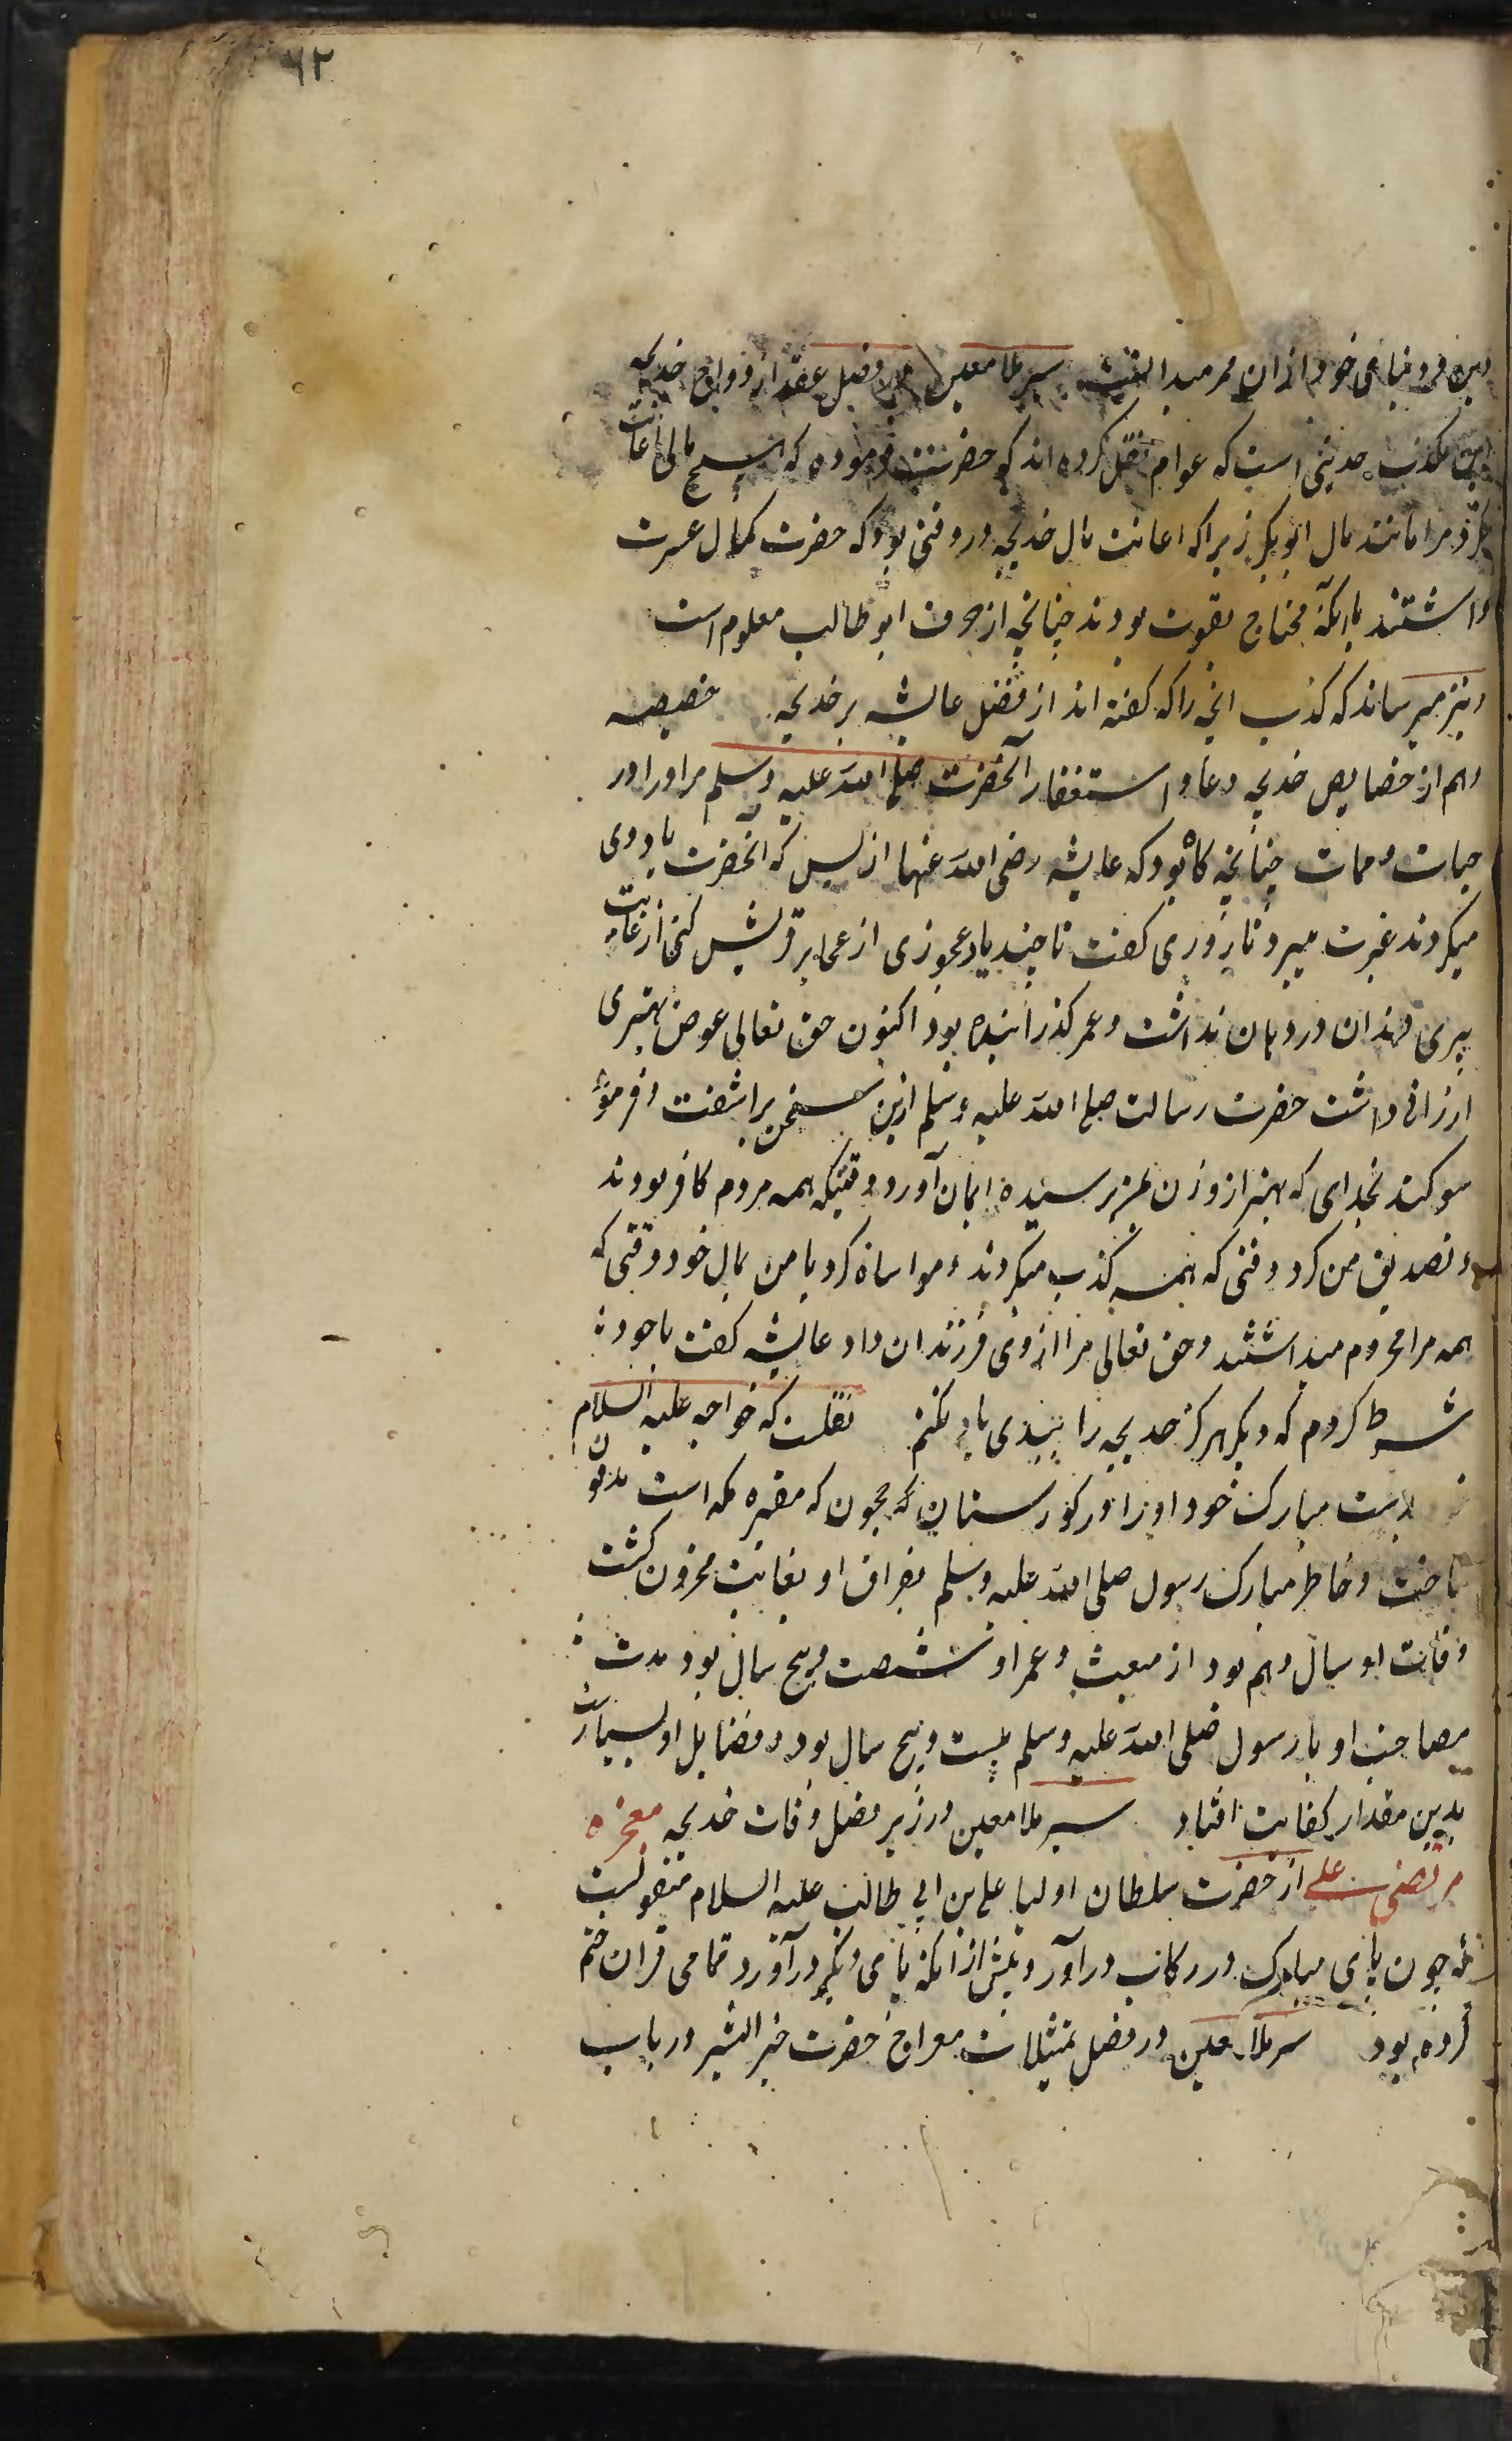 ٦٢
دین و دنیای خود ازان محمر میدانند سیر ملا معین در فصل عقد ازدواج خدیجه
این مکذب حدیثی است که عوام نقل کرده اند که حضرت فرموده که هیچ مالی اعانت
نکرد مرا مانند مال ابوبکر زیرا که اعانت مال خدیجه در وقتی بود که حضرت کمال عسرت
داشتند بلکه محتاج بقوت بودند چنانچه از حرف ابو طالب معلوم است
و نیز میرساند که کذب انچه را که گفته اند از فضل عایشه بر خدیجه خصیصه
و هم از خصایص خدیجه دعا و استغفار آنحضرت صلی الله علیه وسلم مر او را در
حیات و ممات چنانچه گاه بود که عایشه رضی الله عنها از بس که انحضرت یاد وی
میکردند غیرت میبرد تا روزی گفت تا چند یاد عجوزی از عجایز قریش کنی از غایت
پیری دندان در دهان نداشت و عمر گذرانیده بود اکنون حق تعالی عوض بهتری
ارزانی داشت حضرت رسالت صلی الله علیه وسلم ازین سخن براشفت و فرمود
سوکند بخدای که بهتر از و زن بمن نرسیده ایمان آورد وقتیکه همه مردم کافر بودند
و تصدیق من کرد وقتی که همه تکذب میکردند و مواساة کرد با من بمال خود وقتی که
همه مرا محروم میداشتند و حق تعالی مرا از وی فرزندان داد عایشه گفت با خود
شرط کردم که دیگر هرگز خدیجه را ببدی یاد نکنم نقلست که خواجه علیه السلام
بدست مبارک خود او را در کورستان حجون که مقبره مکه است مدفون
ساخت و خاطر مبارک رسول صلی الله علیه وسلم بفراق او بغایت محزون گشت
وفات او سال دهم بود از مبعث و عمر او شصت و پنج سال بود مدت
مصاحبت او با رسول صلی الله علیه وسلم بیست و پنج سال بود و فضایل او بسیارست
بدین مقدار کفایت افتاد سیر ملا معین در زیر فصل وفات خدیجه معجزه
مرتضی علی از حضرت سلطان اولیا علی بن ابی طالب علیه السلام منقولست
که چون پای مبارک در رکاب در آورد پیش از انکه پای دیگر در آورد تمامی قران ختم
کرده بود سیر ملا معین در فصل تمثیلات معراج حضرت خیر البشر در باب